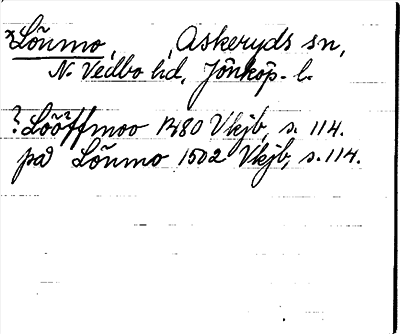 *Lönmo, , Askeryds sn,
N. Vedbo hd, Jönköp. l.
? Lööffmoo 1480 Vkjb, s. 114.
pa Lönmo 1502 Vkjb, s. 114.